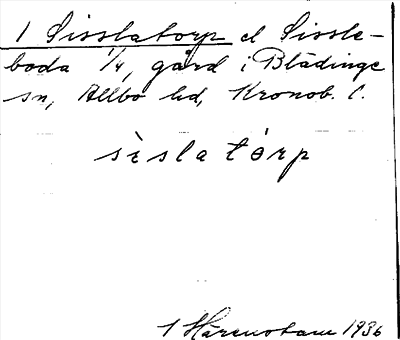 1 Sisslatorp el Sissle-
boda 1/4, gård i Blädinge
sn, Allbo hd, Kronob. l.
sìslatórp
1 Harenstam 1936